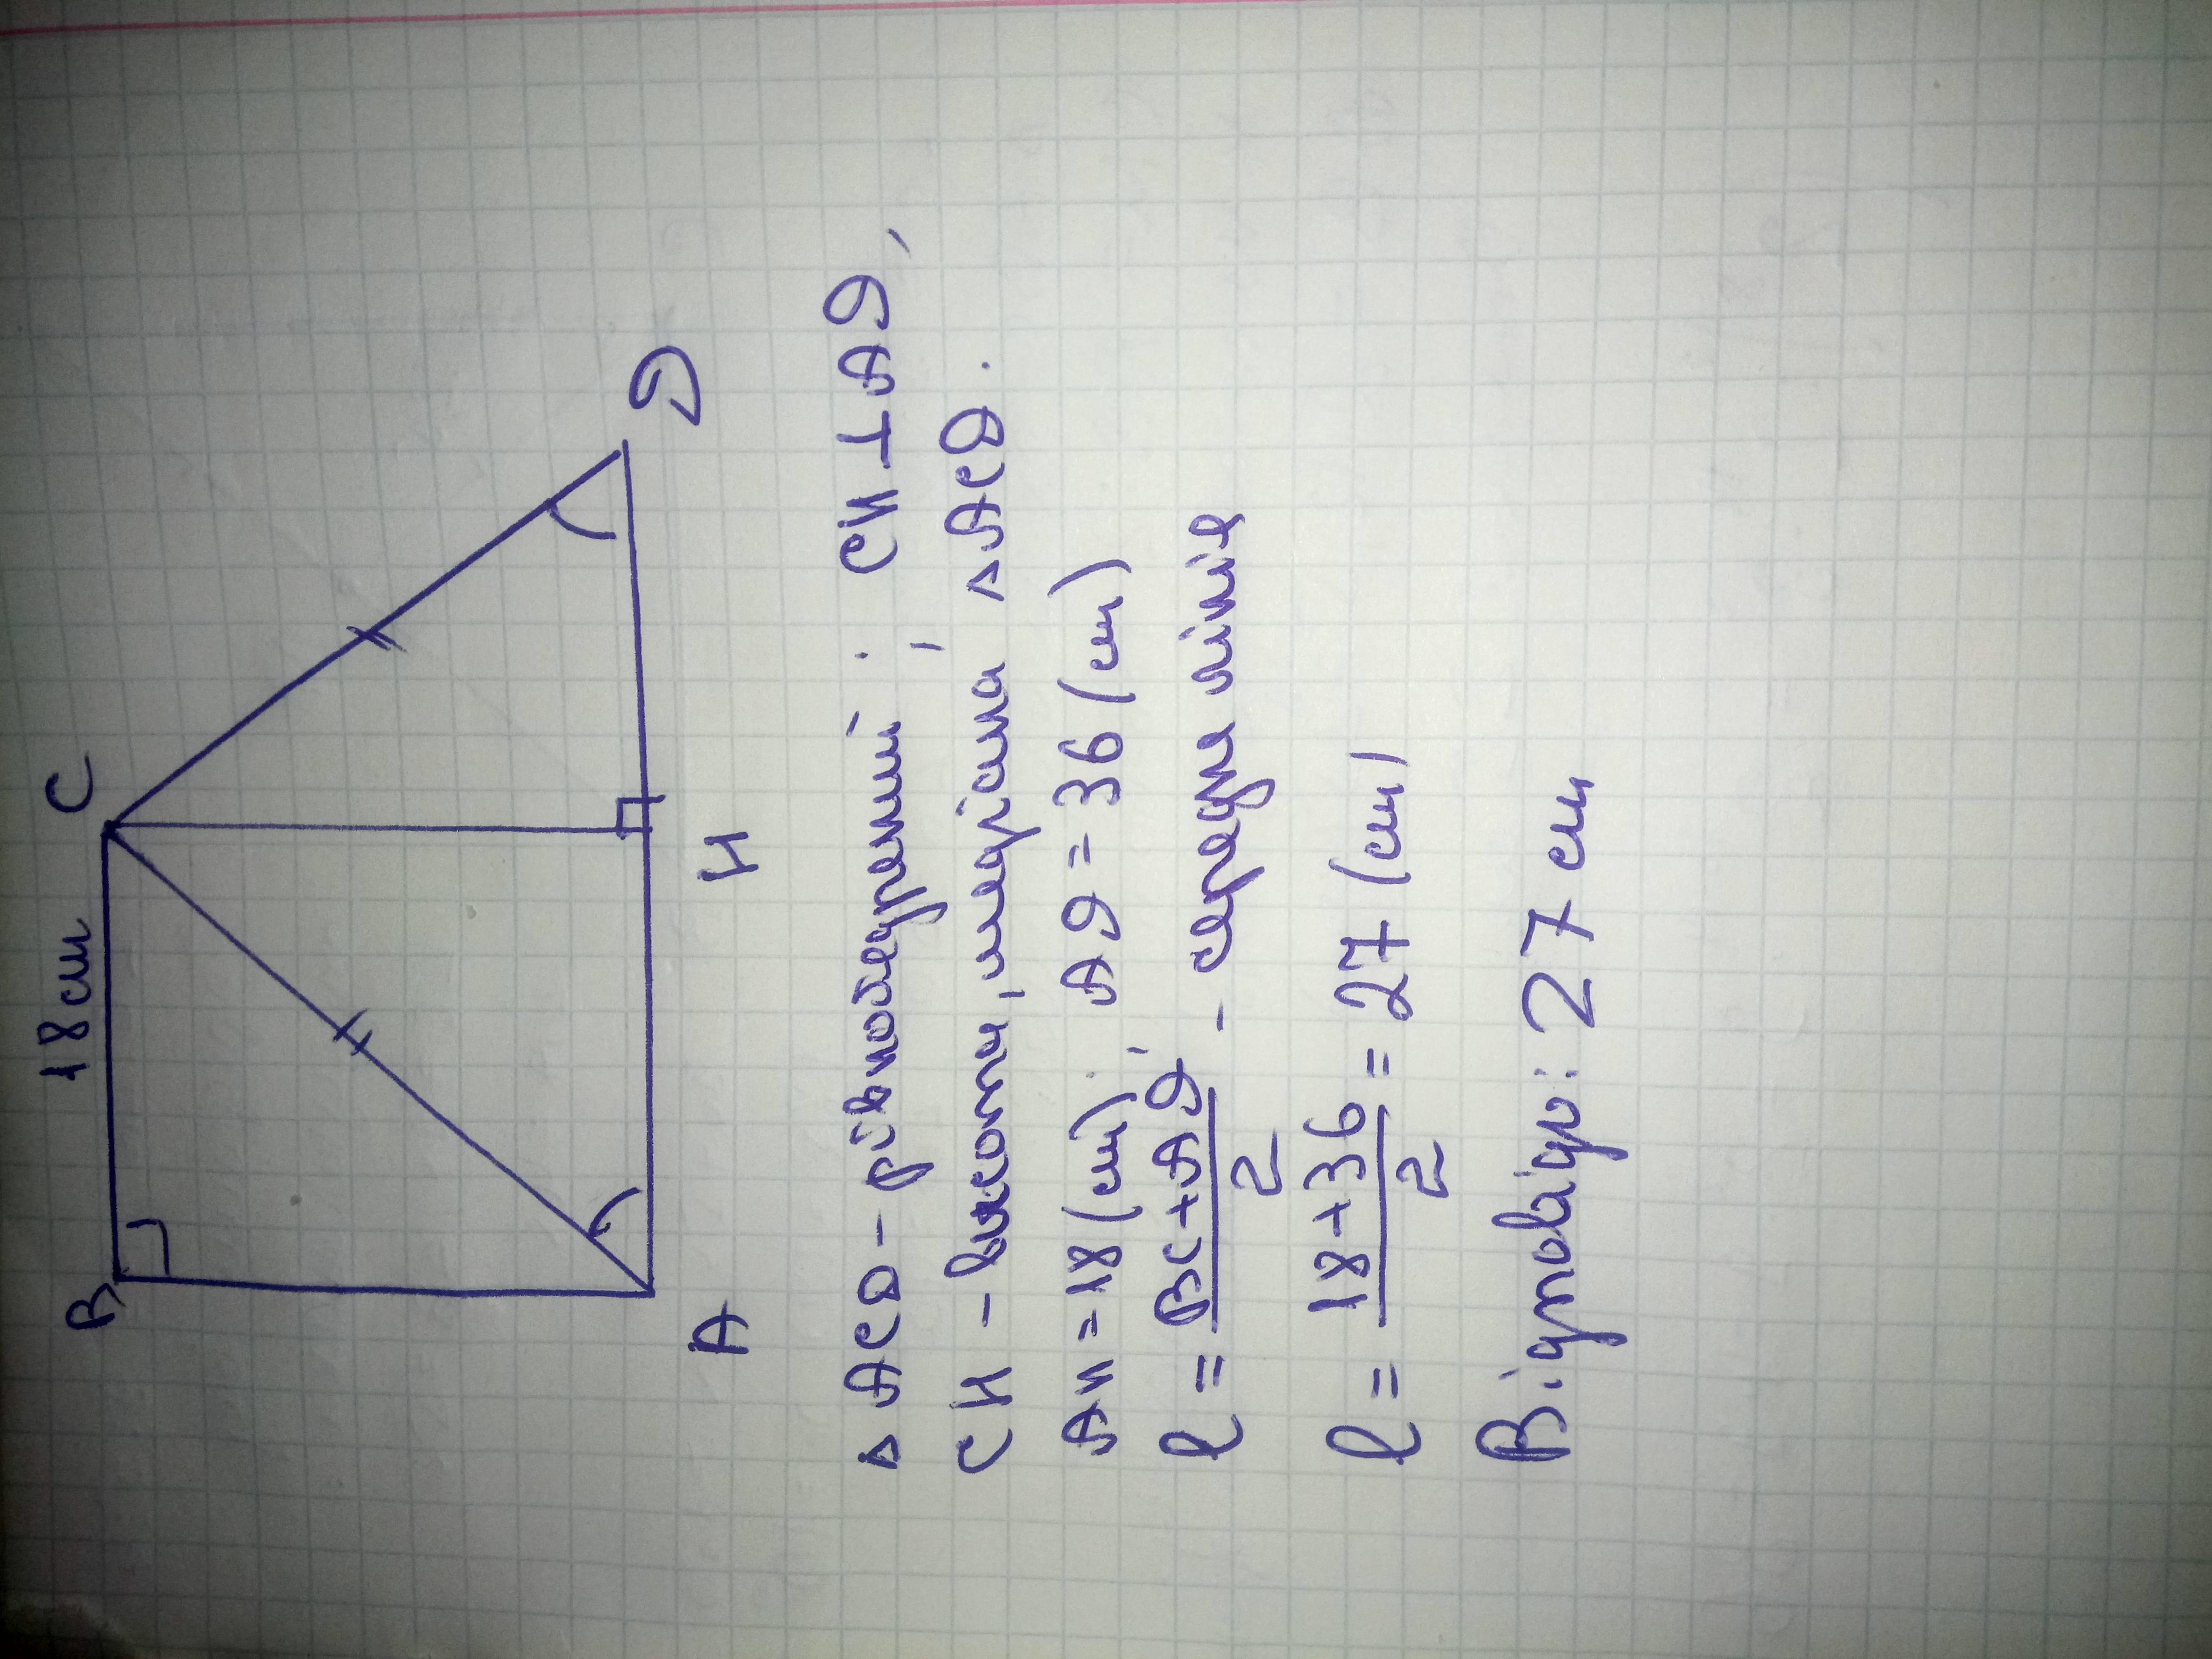 18 см
B C
A H D
△ ACD - рівнобедрений; CH ⊥ AD,
CH - висота, медіана, △ ACD.
AH = 18 (см); AD = 36 (см)
l = (BC + AD) / 2 - середня лінія
l = (18 + 36) / 2 = 27 (см)
Відповідь: 27 см